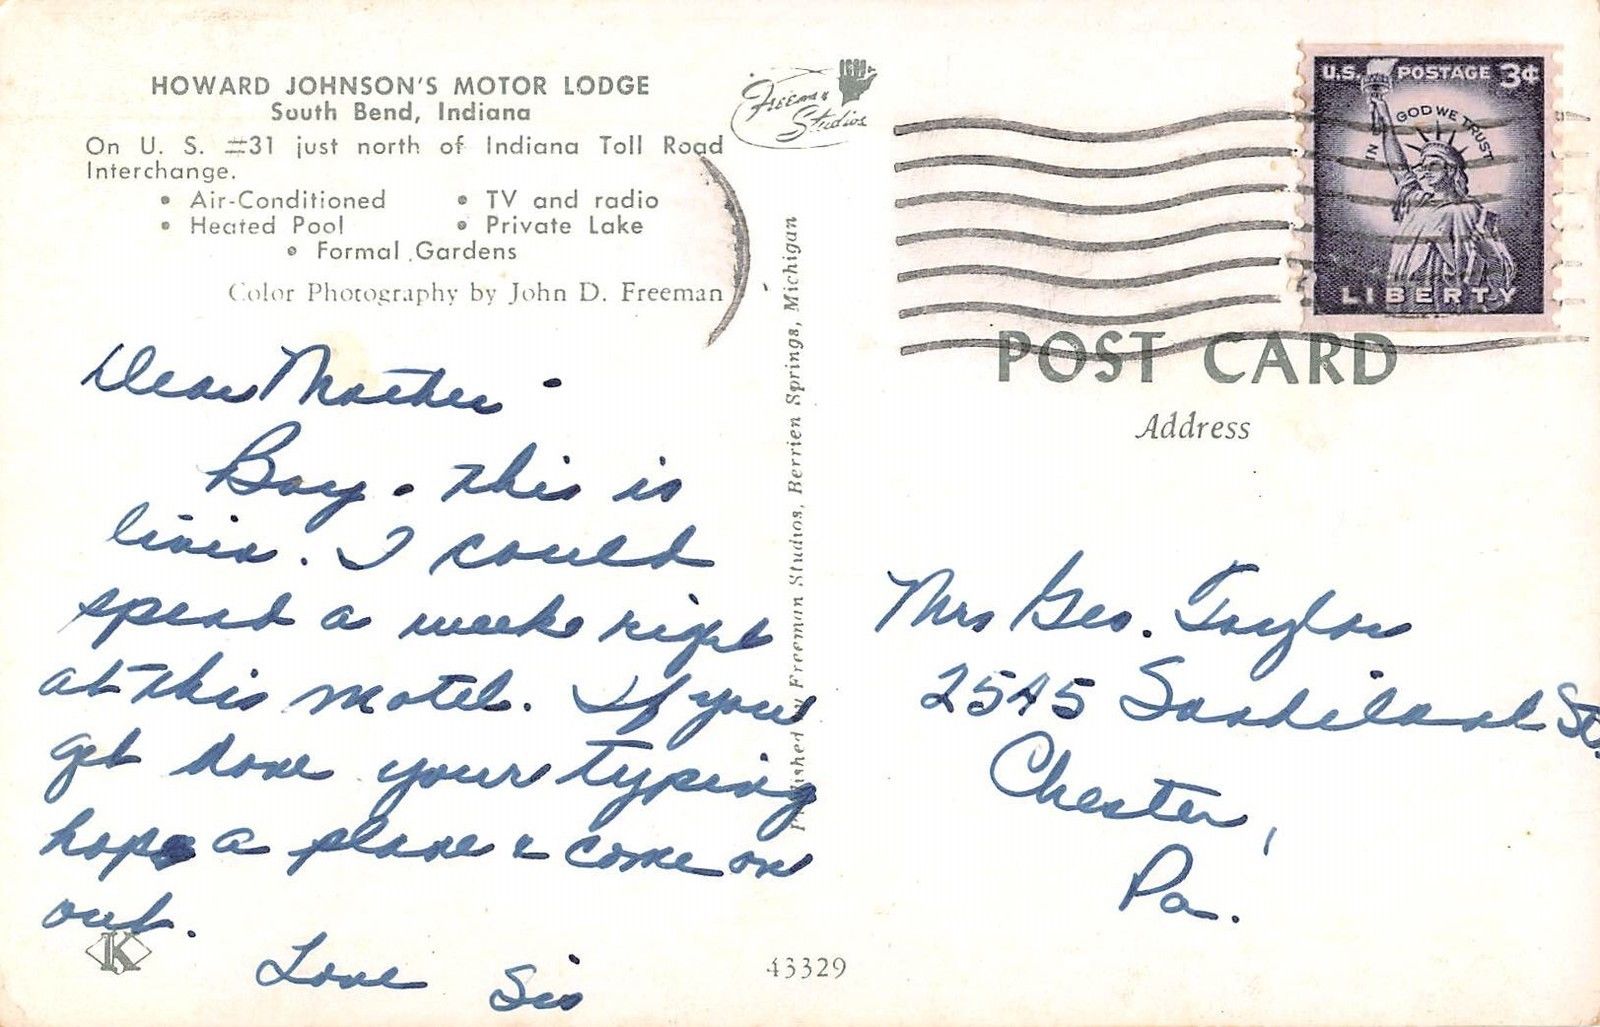 HOWARD JOHNSON'S MOTOR LODGE
South Bend, Indiana
On U. S. #31 just north of Indiana Toll Road
Interchange.
• Air-Conditioned • TV and radio
• Heated Pool • Private Lake
• Formal Gardens
Color Photography by John D. Freeman
Dear Mother -
Boy - this is
livin. I could
spend a week right
at this motel. If you
get done your typing
hop a plane & come on
out.
Love Sis
K
43329
Published by Freeman Studios, Berrien Springs, Michigan
Freeman
Studios
U.S. POSTAGE 3¢
IN GOD WE TRUST
LIBERTY
POST CARD
Address
Mrs Geo. Taylor
2545 St.
Chester,
Pa.